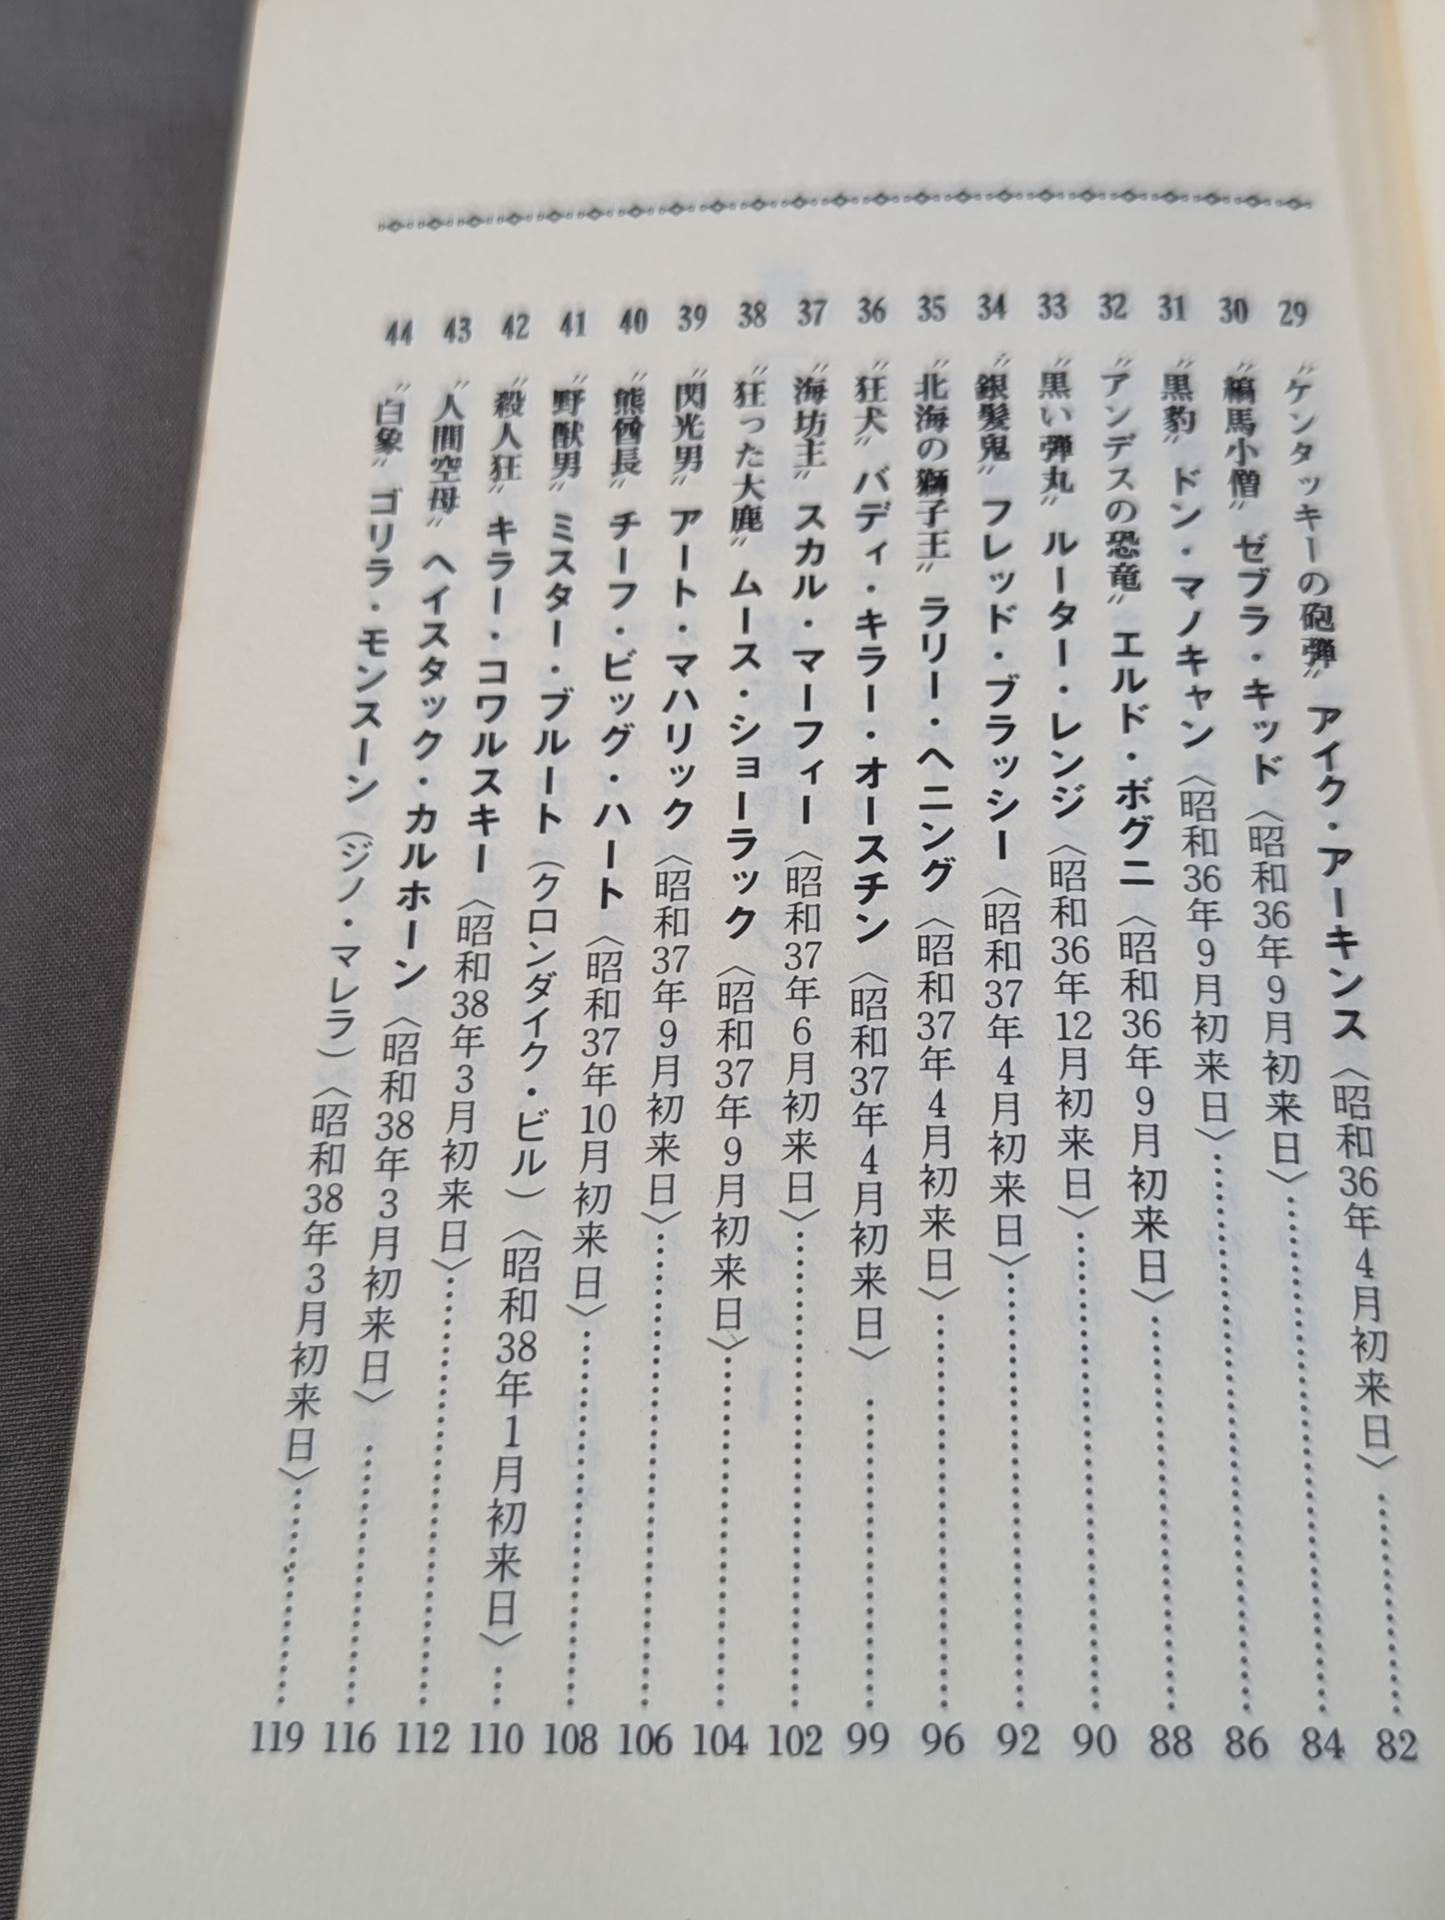 29 〝ケンタッキーの砲弾〟 アイク・アーキンス〈昭和36年4月初来日〉…………82
30 〝縞馬小僧〟 ゼブラ・キッド〈昭和36年9月初来日〉…………84
31 〝黒豹〟 ドン・マノキャン〈昭和36年9月初来日〉…………86
32 〝アンデスの恐竜〟 エルド・ボグニ〈昭和36年9月初来日〉…………88
33 〝黒い弾丸〟 ルーター・レンジ〈昭和36年12月初来日〉…………90
34 〝銀髪鬼〟 フレッド・ブラッシー〈昭和37年4月初来日〉…………92
35 〝北海の獅子王〟 ラリー・ヘニング〈昭和37年4月初来日〉…………96
36 〝狂犬〟 バディ・キラー・オースチン〈昭和37年4月初来日〉…………99
37 〝海坊主〟 スカル・マーフィー〈昭和37年6月初来日〉…………102
38 〝狂った大鹿〟 ムース・ショーラック〈昭和37年9月初来日〉…………104
39 〝閃光男〟 アート・マハリック〈昭和37年9月初来日〉…………106
40 〝熊酋長〟 チーフ・ビッグ・ハート〈昭和37年10月初来日〉…………108
41 〝野獣男〟 ミスター・ブルート（クロンダイク・ビル）〈昭和38年1月初来日〉…110
42 〝殺人狂〟 キラー・コワルスキー〈昭和38年3月初来日〉…………112
43 〝人間空母〟 ヘイスタック・カルホーン〈昭和38年3月初来日〉…………116
44 〝白象〟 ゴリラ・モンスーン（ジノ・マレラ）〈昭和38年3月初来日〉…………119